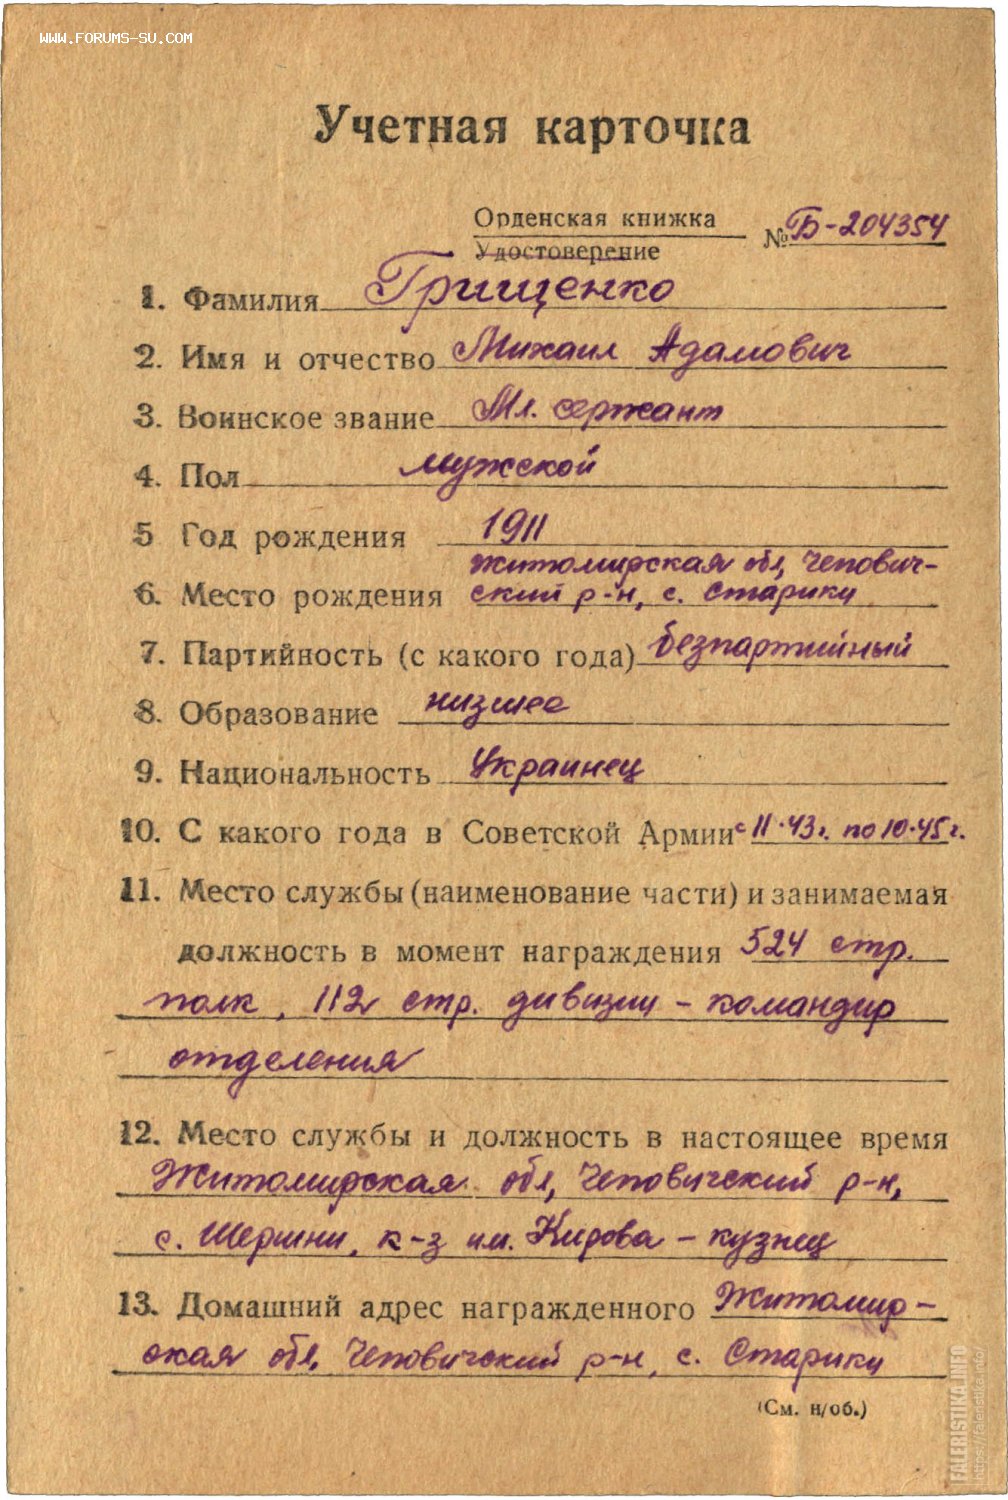 WWW.FORUMS-SU.COM
Учетная карточка
Орденская книжка
Удостоверение
№ Б-204354
1. Фамилия Грищенко
2. Имя и отчество Михаил Адамович
3. Воинское звание Мл. сержант
4. Пол мужской
5 Год рождения 1911
Житомирская обл, Чепович-
6. Место рождения ский р-н, с. Старики
7. Партийность (с какого года) безпартийный
8. Образование низшее
9. Национальность Украинец
10. С какого года в Советской Армии с 11·43г. по 10·45г.
11. Место службы (наименование части) и занимаемая
должность в момент награждения 524 стр.
полк, 112 стр. дивизии - командир
отделения
12. Место службы и должность в настоящее время
Житомирская обл, Чеповичский р-н,
с. Шершни, к-з им. Кирова - кузнец
13. Домашний адрес награжденного Житомир-
ская обл, Чеповичский р-н, с. Старики
(См. н/об.)
FALERISTIKA.INFO
https://faleristika.info/